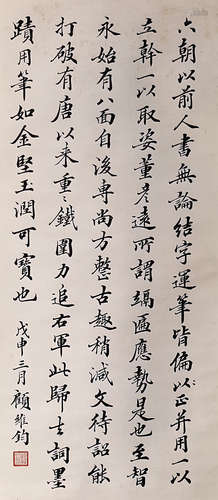 六朝以前人書無論結字運筆皆偏以正并用一以
立幹一以取姿董彥遠所謂編匾應勢是也至智
永始有八面自後專尚方整古趣稍減文待詔能
打破有唐以来重重鐵圍力追右軍此歸去詞墨
蹟用筆如金堅玉潤可寶也
戊申三月顧維鈞